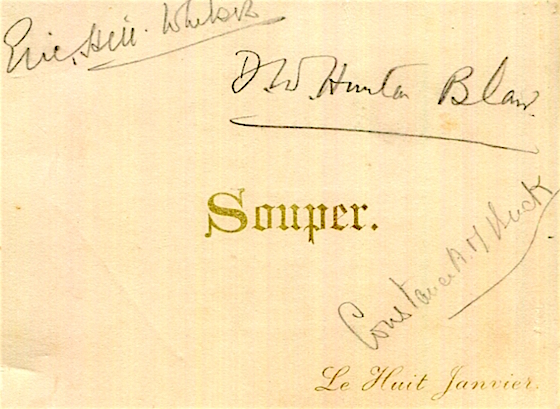 Eric Hill-Whelock
D. W. Hunter Blair
Souper.
Constance A. M
Le Huit Janvier.